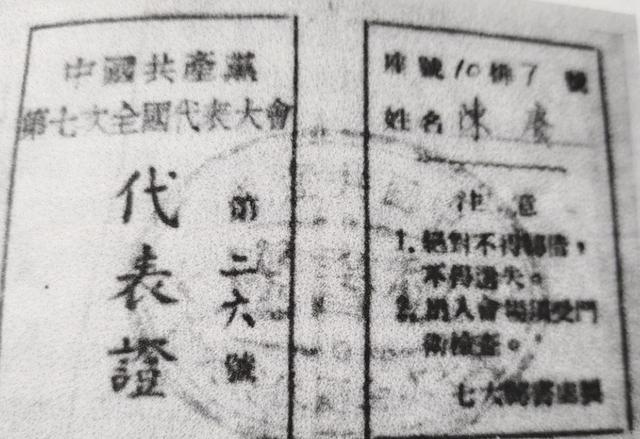 中國共產黨
第七次全國代表大會
代表證
第二六號
座號10排7號
姓名 陳賡
注意
1. 絕對不得轉借，
不得遺失。
2. 出入會場須受門
衛檢查。
七大秘書處製